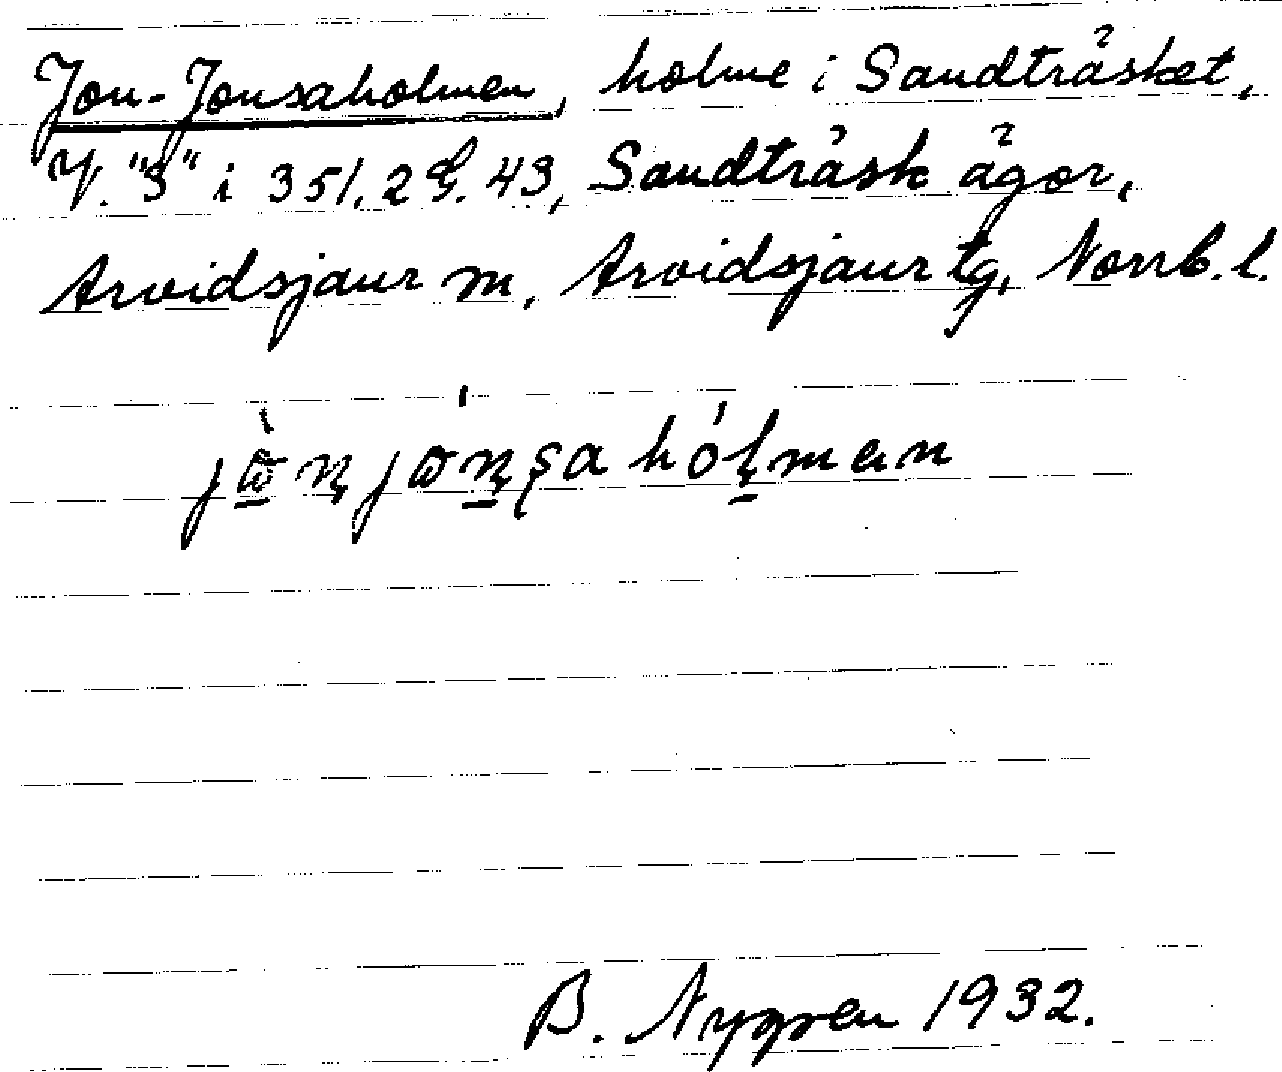 Jon-Jonsaholmen, holme i Sandträsket,
V. "3" i 351.2 G. 43, Sandträsk ägor,
Arvidsjaur m, Arvidsjaur tg, Norrb. l.
B. Nygren 1932.